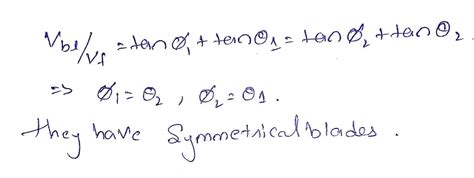 Vbl/Vf = tan Ø1 + tan Θ1 = tan Ø2 + tan Θ2
=> Ø1 = Θ2 , Ø2 = Θ1 .
they have Symmetrical blades .